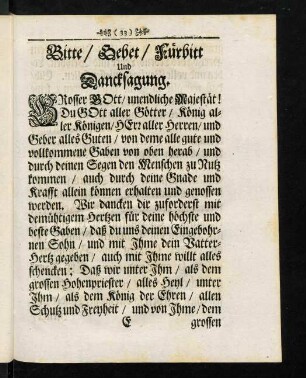 ( 33 )
Bitte / Gebet / Fürbitt
Und
Dancksagung.
GRosser GOtt / unendliche Majestät!
Du GOtt aller Götter / König al-
ler Königen / HErr aller Herren / und
Geber alles Guten / von deme alle gute und
vollkommene Gaben von oben herab / und
durch deinen Segen den Menschen zu Nutz
kommen / auch durch deine Gnade und
Krafft allein können erhalten und genossen
werden. Wir dancken dir zuforderst mit
demühtigem Hertzen für deine höchste und
beste Gaben / daß du uns deinen Eingebohr-
nen Sohn / und mit Ihme dein Vatter-
Hertz gegeben / auch mit Ihme willt alles
schencken: Daß wir unter Ihm / als dem
grossen Hohenpriester / alles Heyl / unter
Ihm / als dem König der Ehren / allen
Schutz und Freyheit / und von Ihme / dem
E grossen